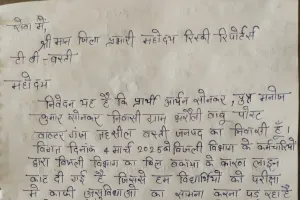 सेवा में
श्री मान जिला प्रभारी महोदय रिस्की रिपोर्टर्स
टी वी बस्ती
महोदय
निवेदन यह है कि प्रार्थी आर्यन सोनकर, पुत्र मनोज
कुमार सोनकर निवासी ग्राम बाबू पोस्ट
वाल्टर गंज तहसील बस्ती जनपद का निवासी है।
विगत दिनांक 4 मार्च 2025 बिजली विभाग के कर्मचारियों
द्वारा बिजली विभाग का बिल बकाया के कारण लाइन
काट दी गई है जिससे हम विद्यार्थियों को परीक्षा
में काफी असुविधाओं का सामना करना पड़ रहा है